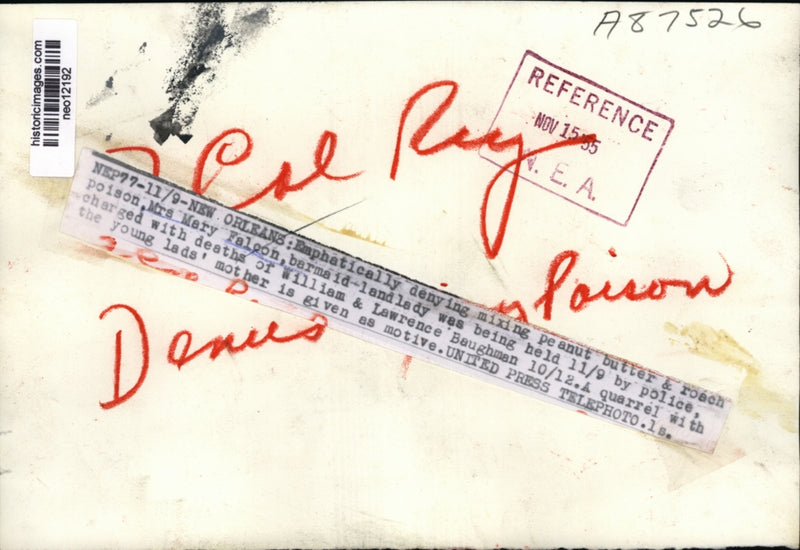 A87526
historicimages.com
neo12192
REFERENCE
NOV 15 55
N. E. A.
Col
NEP77-11/9-NEW ORLEANS:Emphatically denying mixing peanut butter & roach
poison,Mrs Mary Falgon,barmaid-landlady was being held 11/9 by police,
charged with deaths of William & Lawrence Baughman 10/12.A quarrel with
the young lads' mother is given as motive.UNITED PRESS TELEPHOTO.ls.
Poison
Denies